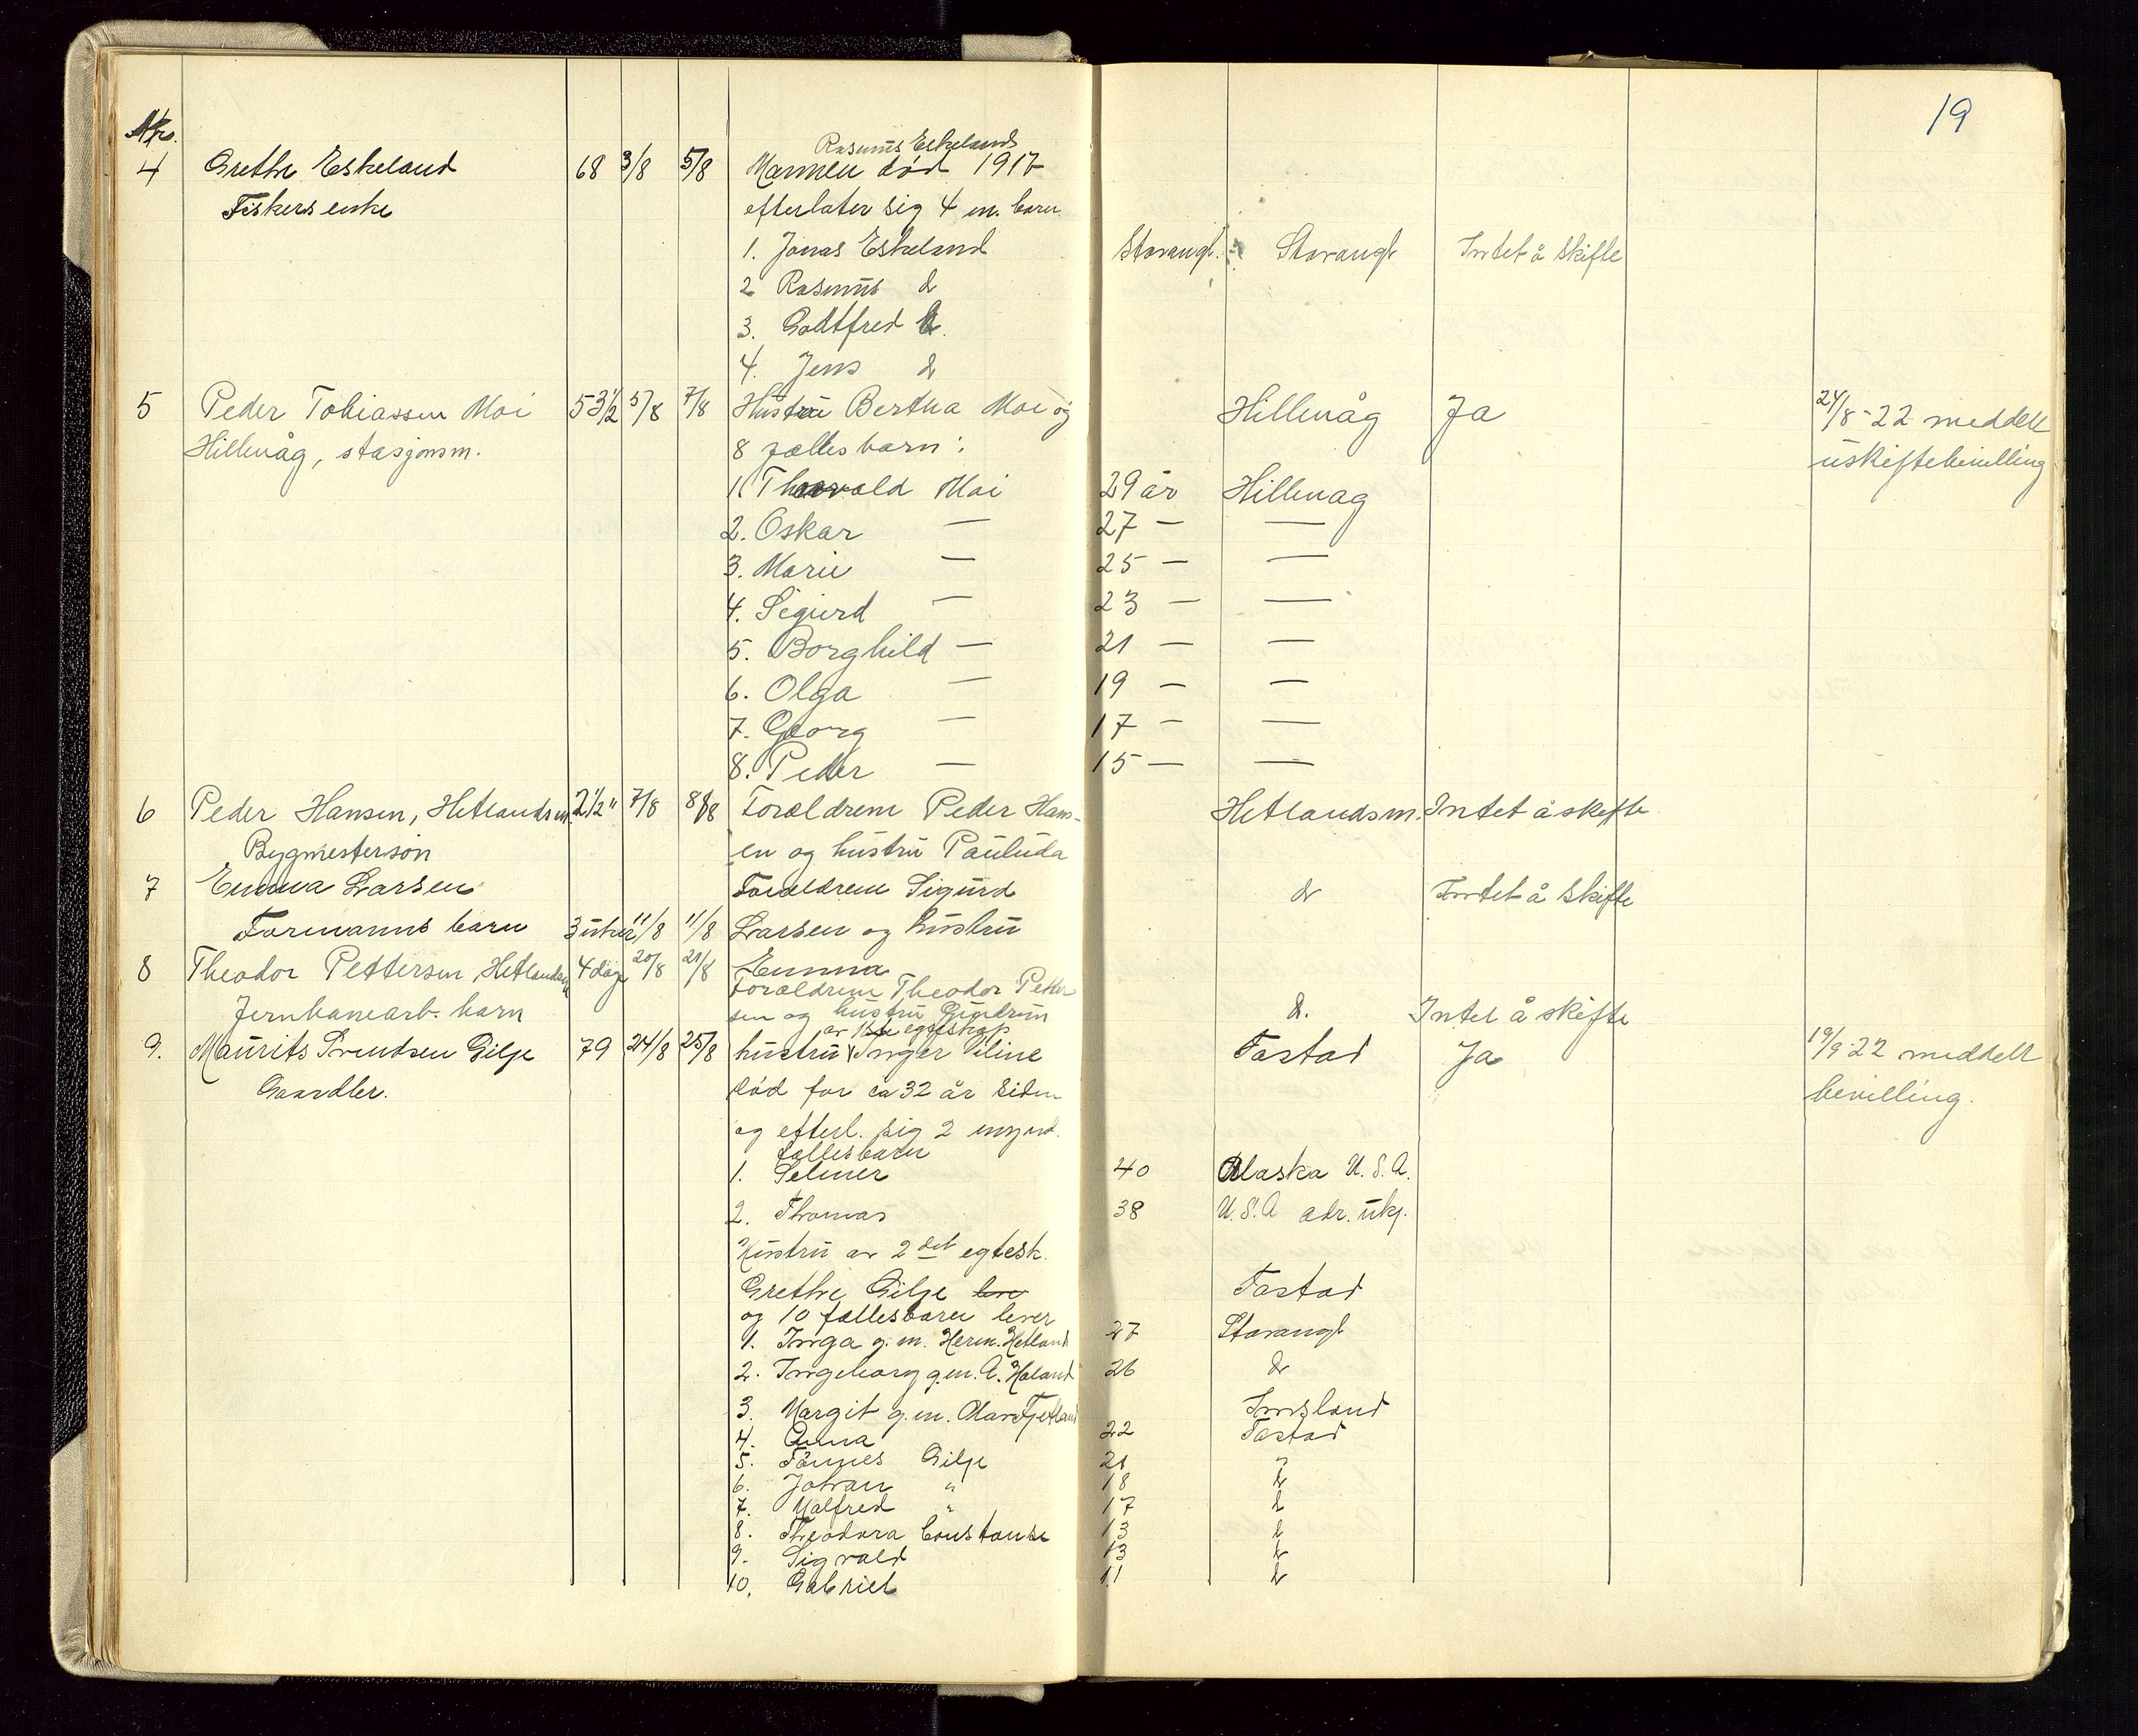 19
No.
Rasmus Eskelands
4 Grethe Eskeland 68 3/8 5/8 Mannen død 1917
Fiskers enke efterlater sig 4 m. barn
1. Jonas Eskeland Stavangr. Stavangr Intet å skifte
2 Rasmus do
3. Godtfred do.
4. Jens do
5 Peder Tobiassen Moi 53 1/2 5/8 7/8 Hustru Bertha Moi og Hillevåg Ja 24/8-22 meddelt
Hillevåg, stasjonsm. 8 fælles barn: uskiftebevilling
1. Thorvald Moi 29 år Hillevag
2. Oskar — 27 — —
3. Marie — 25 — —
4. Sigurd — 23 — —
5. Borghild — 21 — —
6. Olga — 19 — —
7. Georg — 17 — —
8. Peder — 15 — —
6 Peder Hansen, Hetlandsm. 2 1/2 " 7/8 8/8 Forældrene Peder Hans- Hetlandsm. Intet å skifte
Bygmestersøn en og hustru Pauluda
7 Emma Larsen Forældrene Sigurd do Intet å skifte
Formanns barn 3 uker 11/8 11/8 Larsen og hustru
8 Theodor Pettersen Hetlandsm 4 dage 20/8 21/8 Emma
Forældrene Theodor Petter
Jernbanearb. barn sen og hustru Gudrun do. Intet å skifte
av 1ste egteskap
9. Maurits Svendsen Gilje 79 24/8 25/8 hustru Inger Oline Tastad Ja 19/9-22 meddelt
Gaardbr. død for ca 32 år siden bevilling.
og efterl. sig 2 mynd.
fællesbarn
1. Selmer 40 Alaska U.S.A.
2. Thomas 38 U.S.A adr. ukj.
Hustru av 2det egtesk.
Grethe Gilje lever Tastad
og 10 fællesbarn lever
1. Inga g.m. Herm. Hetland 27 Stavangr
2. Ingeborg g.m. A. Haland 26 do
3. Margit g.m. Olav Fjetland Imsland
4. Anna 22 Tastad
5. Tønnes Gilje 21 "
6. Johan " 18 do
7. Malfred " 17 do
8. Theodora Constanse 13 do
9. Sigvald 13 do
10. Gabriel 11 do